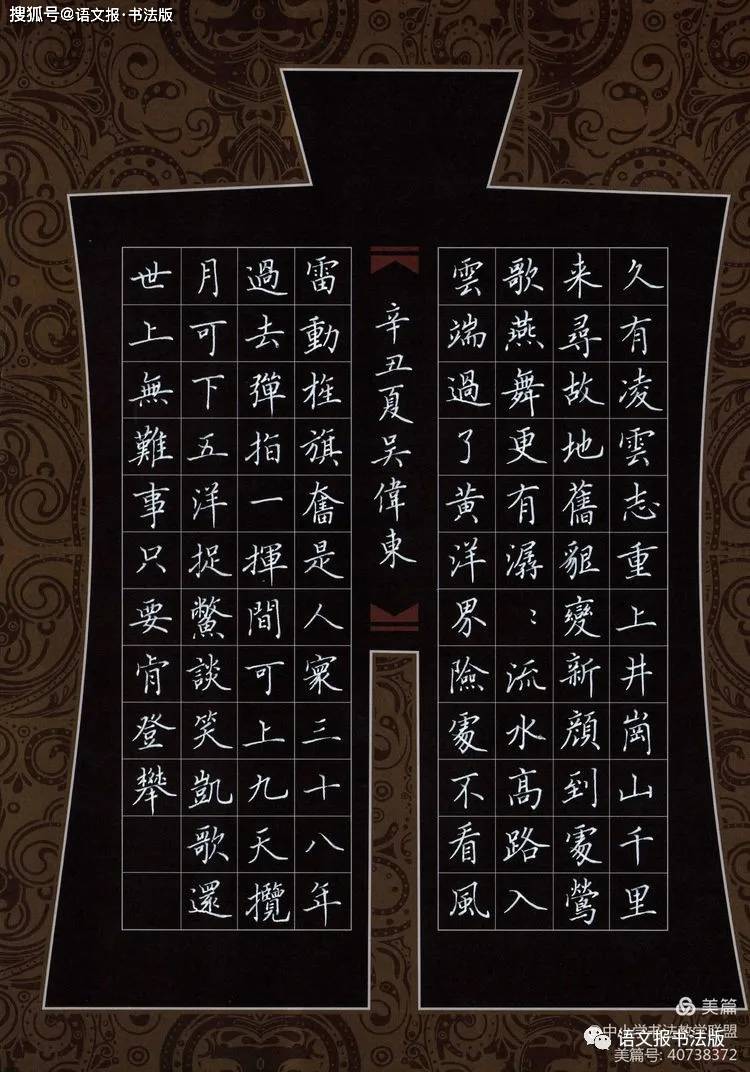 搜狐号@语文报·书法版
久有凌雲志重上井崗山千里
来尋故地舊貌變新顔到處鶯
歌燕舞更有潺：流水高路入
雲端過了黄洋界險處不看風
辛丑夏吳偉東
雷動旌旗奮是人寰三十八年
過去彈指一揮間可上九天攬
月可下五洋捉鱉談笑凱歌還
世上無難事只要肯登攀
美篇
中小学书法教学联盟
语文报书法版
美篇号: 40738372